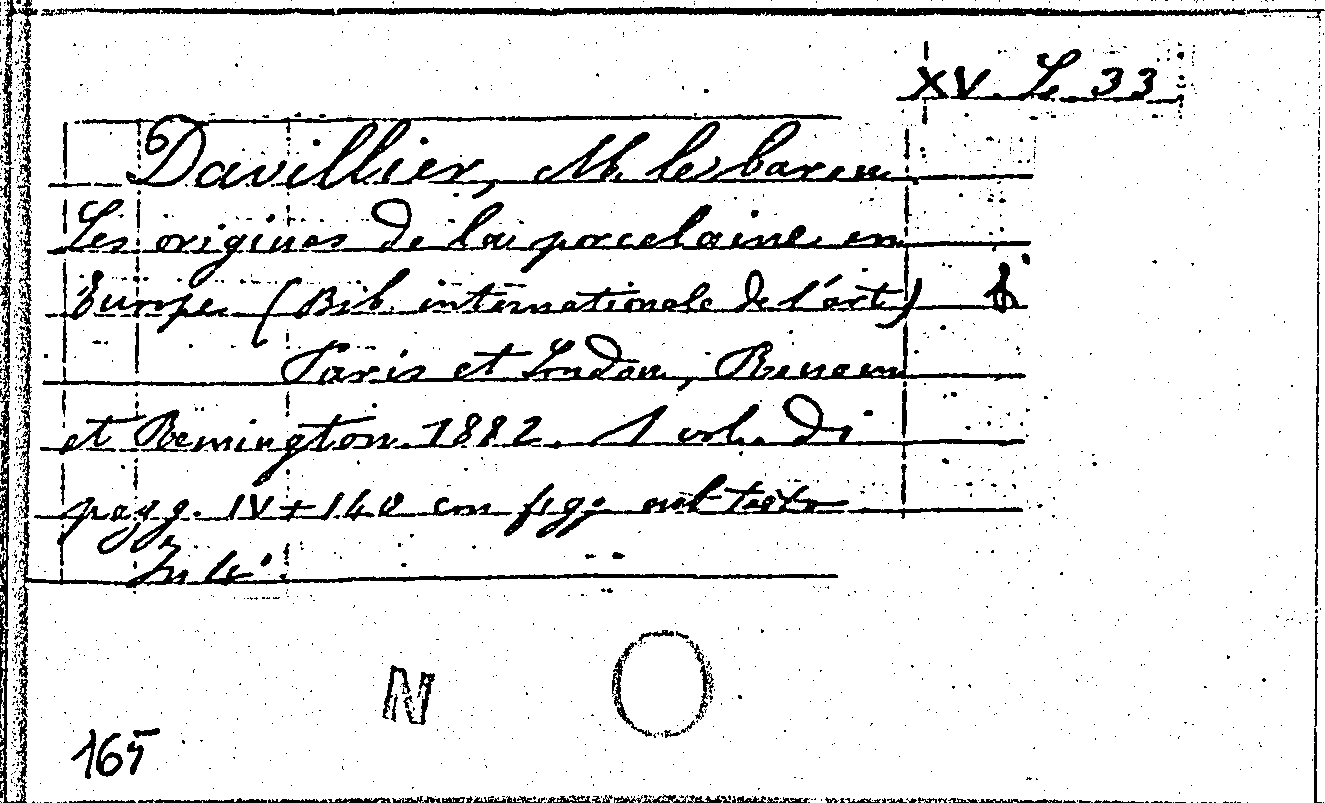 XV. L. 33
Davillier, M. le baron
Les origines de la porcelaine en
Europe (Bib. internationale de l'art)
Paris et London, Remom
et Remington 1882. 1 vol. di
pagg. IV + 140 con figg nel testo
In 4°.
N
165